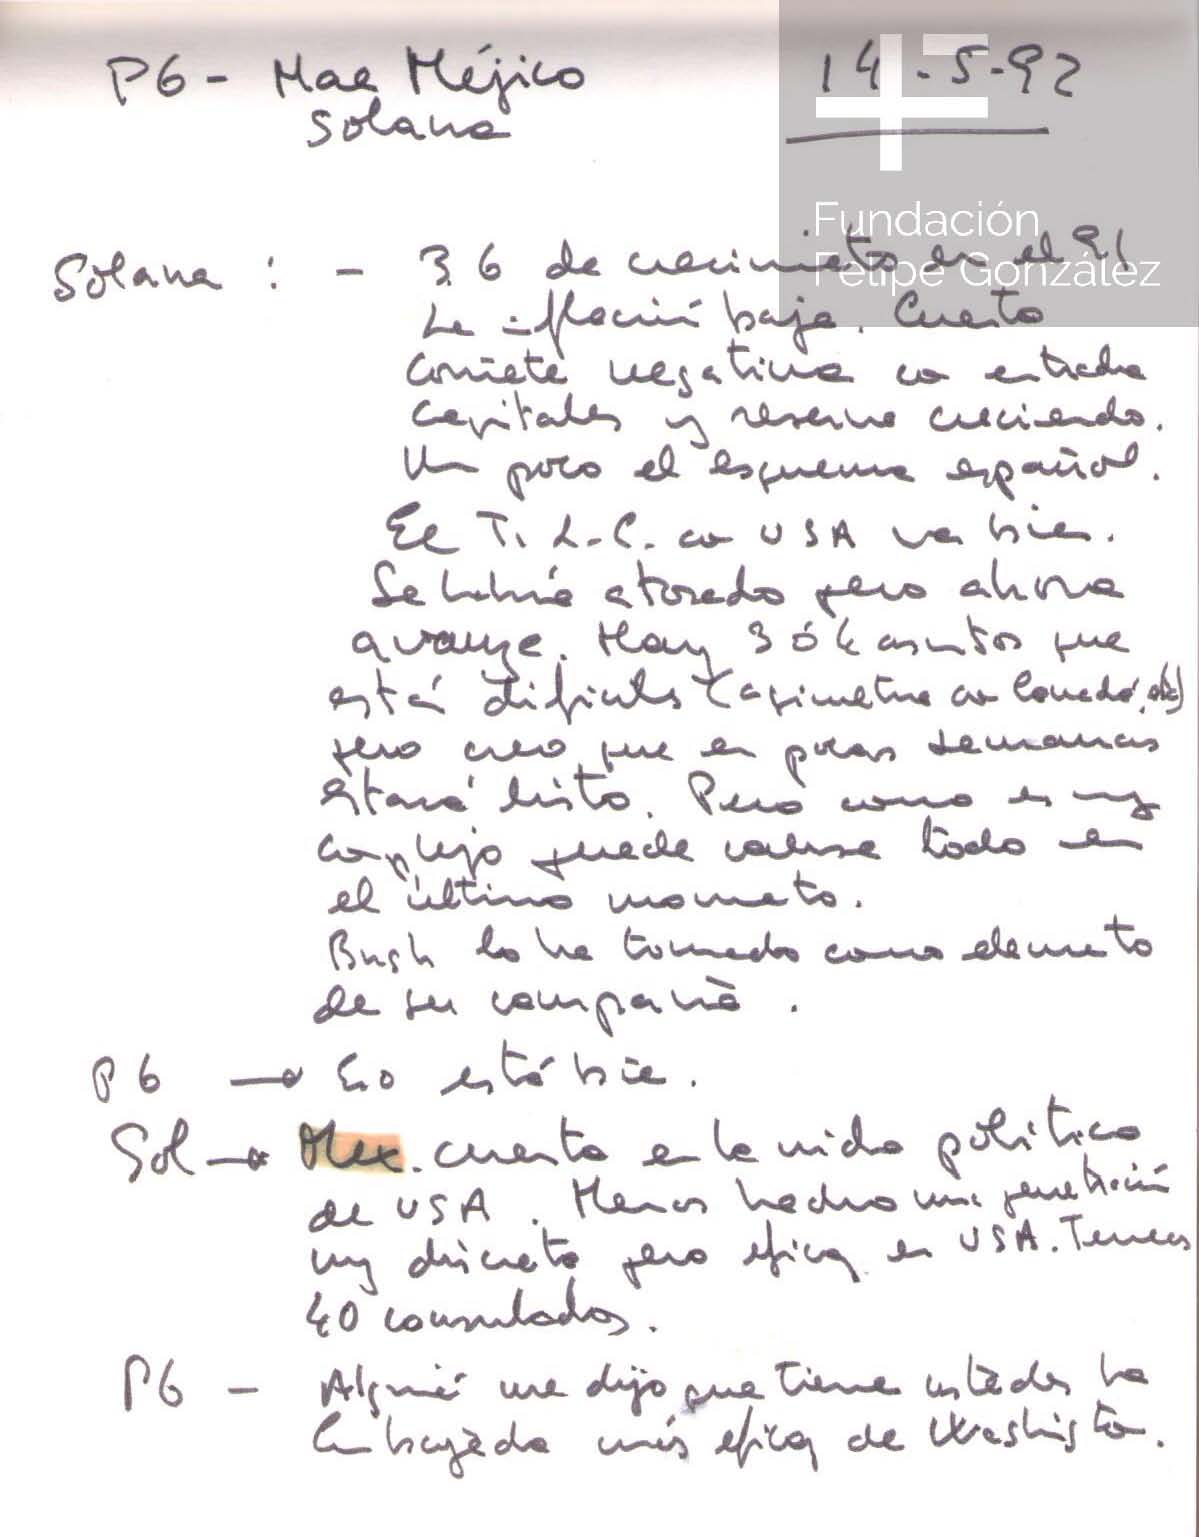 PG - Mae Méjico 14-5-92
Solana
Fundación
Felipe González
Solana : - 3.6 de crecimieto en el 91
La inflación baja. Cuenta
corriete negativa con entrada
capitales y reserva creciendo.
Un poco el esquema español.
El T.L.C. con USA va bien.
Se había atorado pero ahora
avanza. Hay 3 ó 4 asuntos que
está difíciles (asimetría con Canadá, etc)
pero creo que en pocas semanas
estará listo. Pero como es muy
complejo puede caerse todo en
el último mometo.
Bush lo ha tomado como elemeto
de su campaña.
PG → Eso está bie.
Sol → Mex. cuenta en la vida política
de USA. Hemos hecho una penetración
muy discreta pero eficaz en USA. Tenemos
40 consulados.
PG - Alguié me dijo que tiene ustedes la
Embajada más eficaz de Washigto.